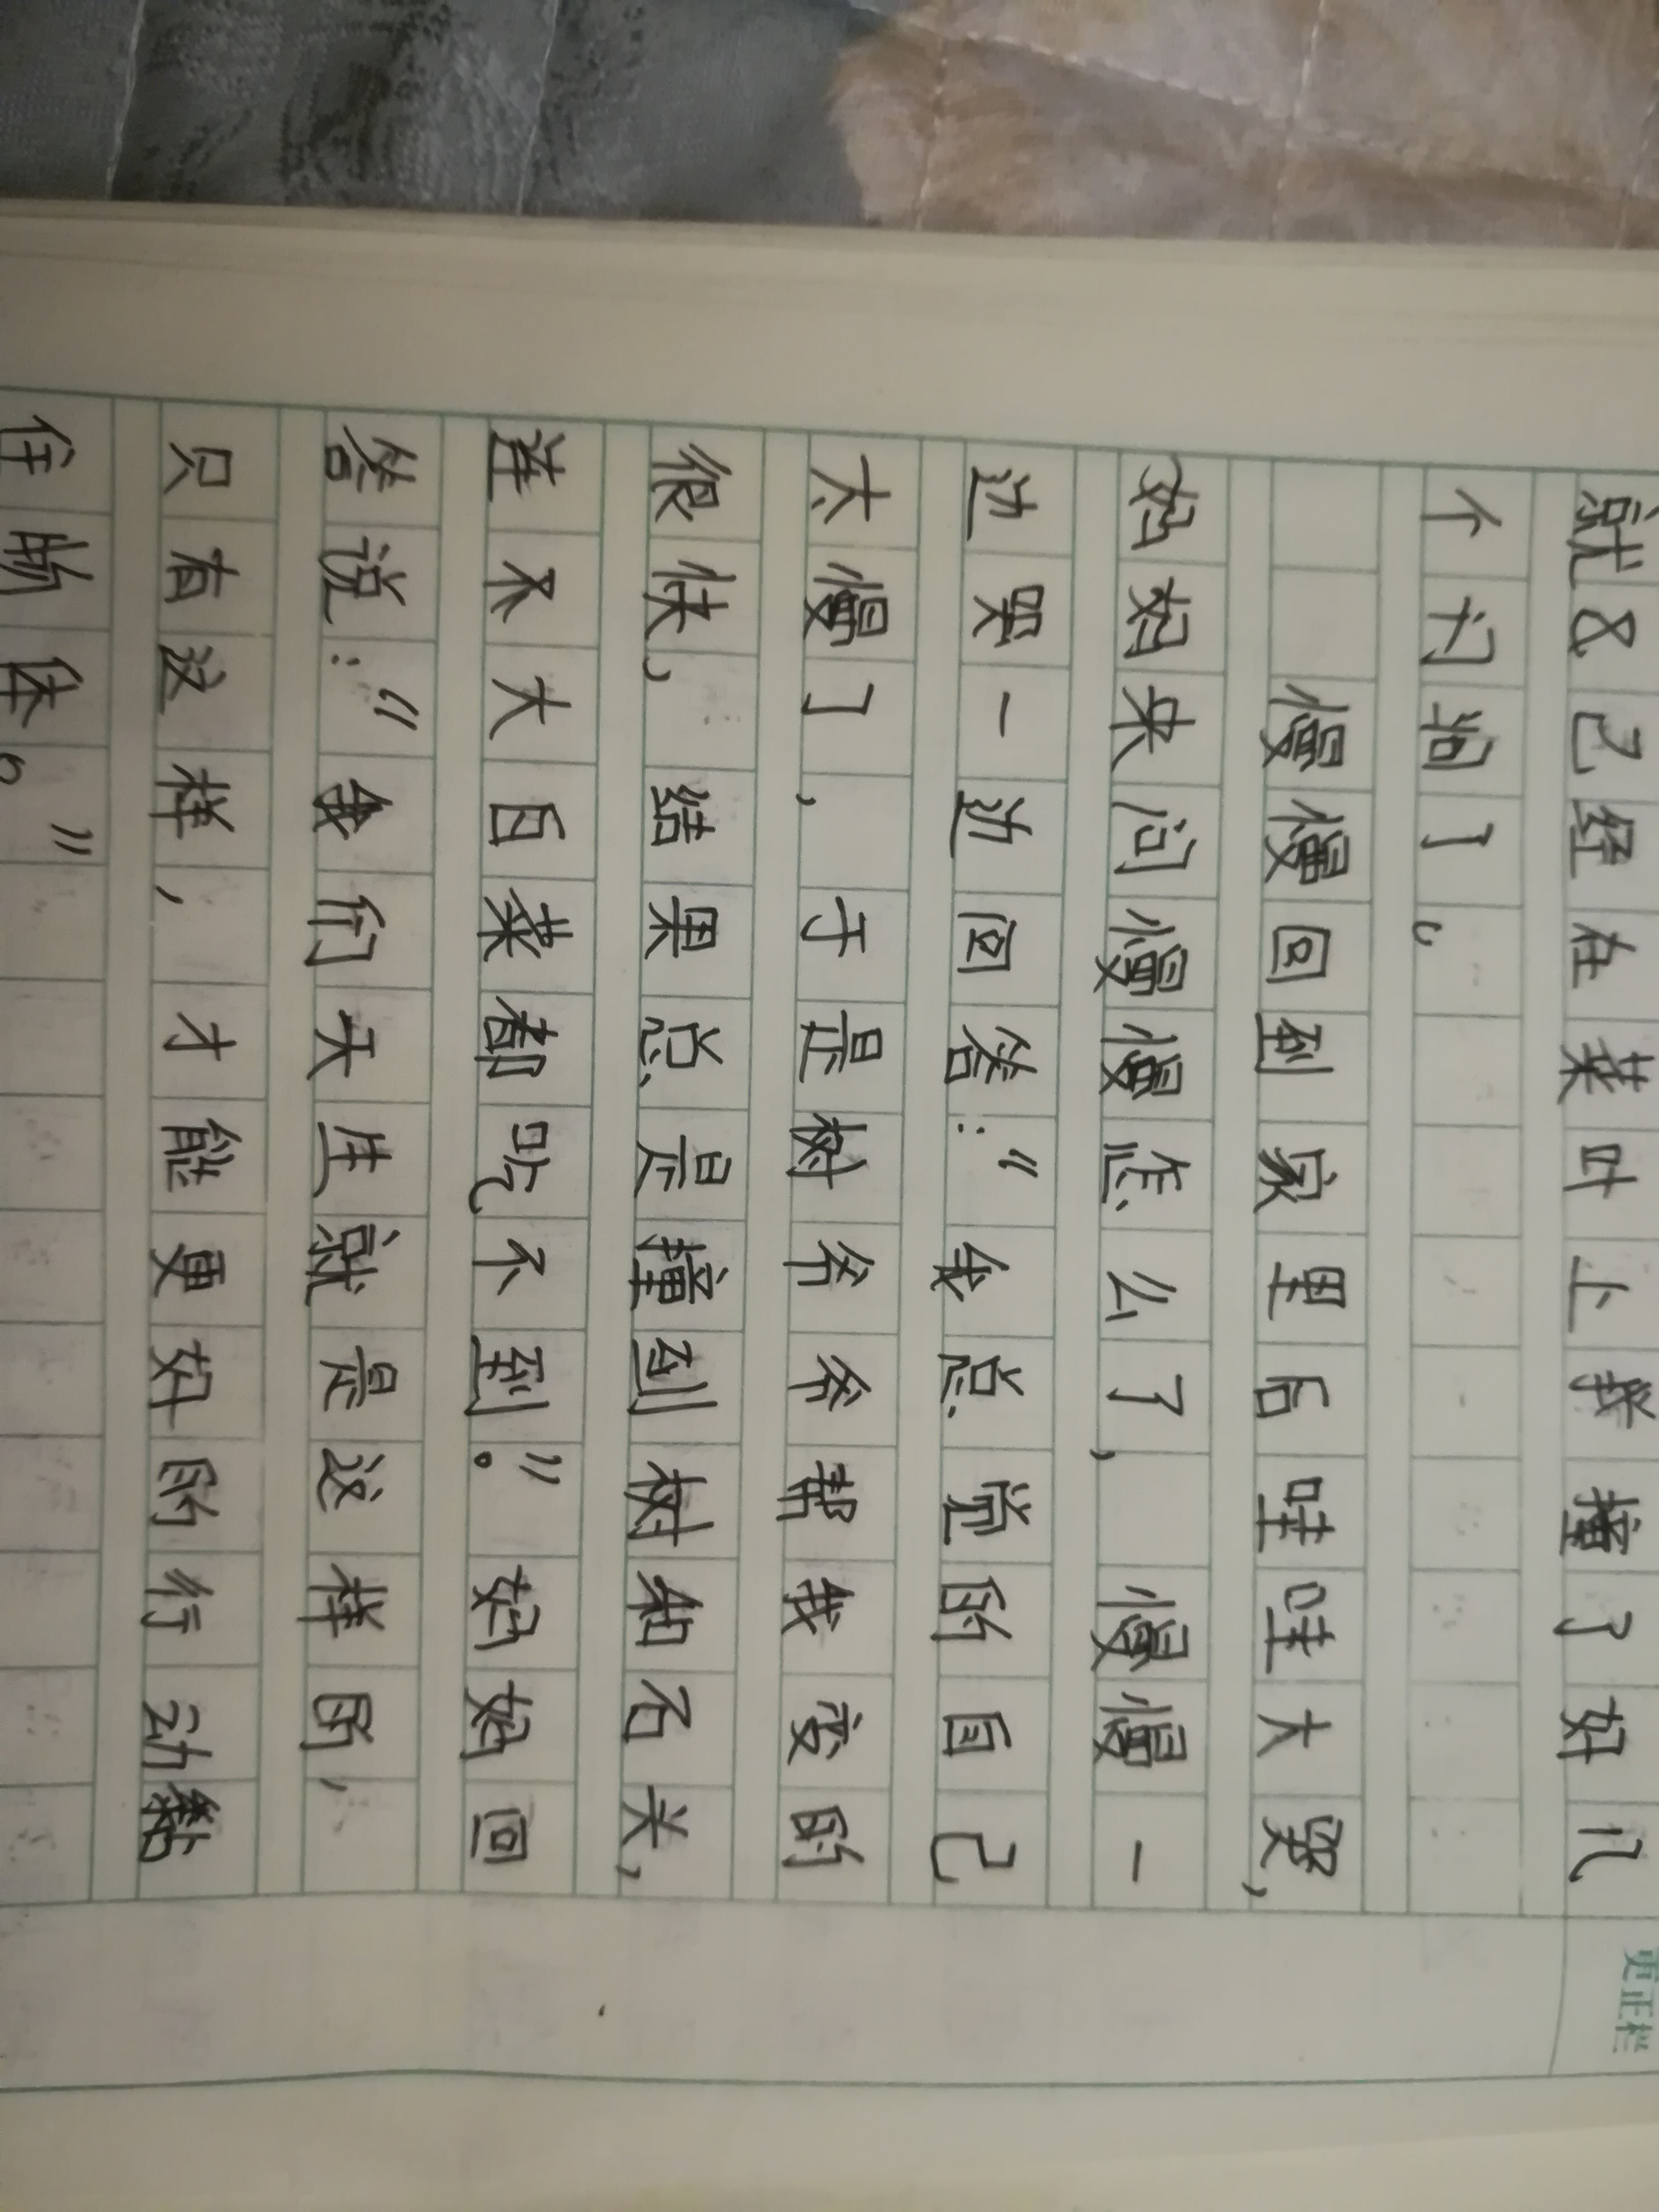 就已经在菜叶上接撞了好几
个刁蛔了。
慢慢回到家里后哇哇大哭,
妈妈来问慢慢怎么了,慢慢一
边哭一边回答:“我总觉的自己
太慢了,于是树爷爷帮我变的
很快,结果总是撞到树和石关,
连不大白菜都吃不到。”妈妈回
答说:“我们天生就是这样的,
只有这样,才能更好的行动黏
住物体。”
更正栏